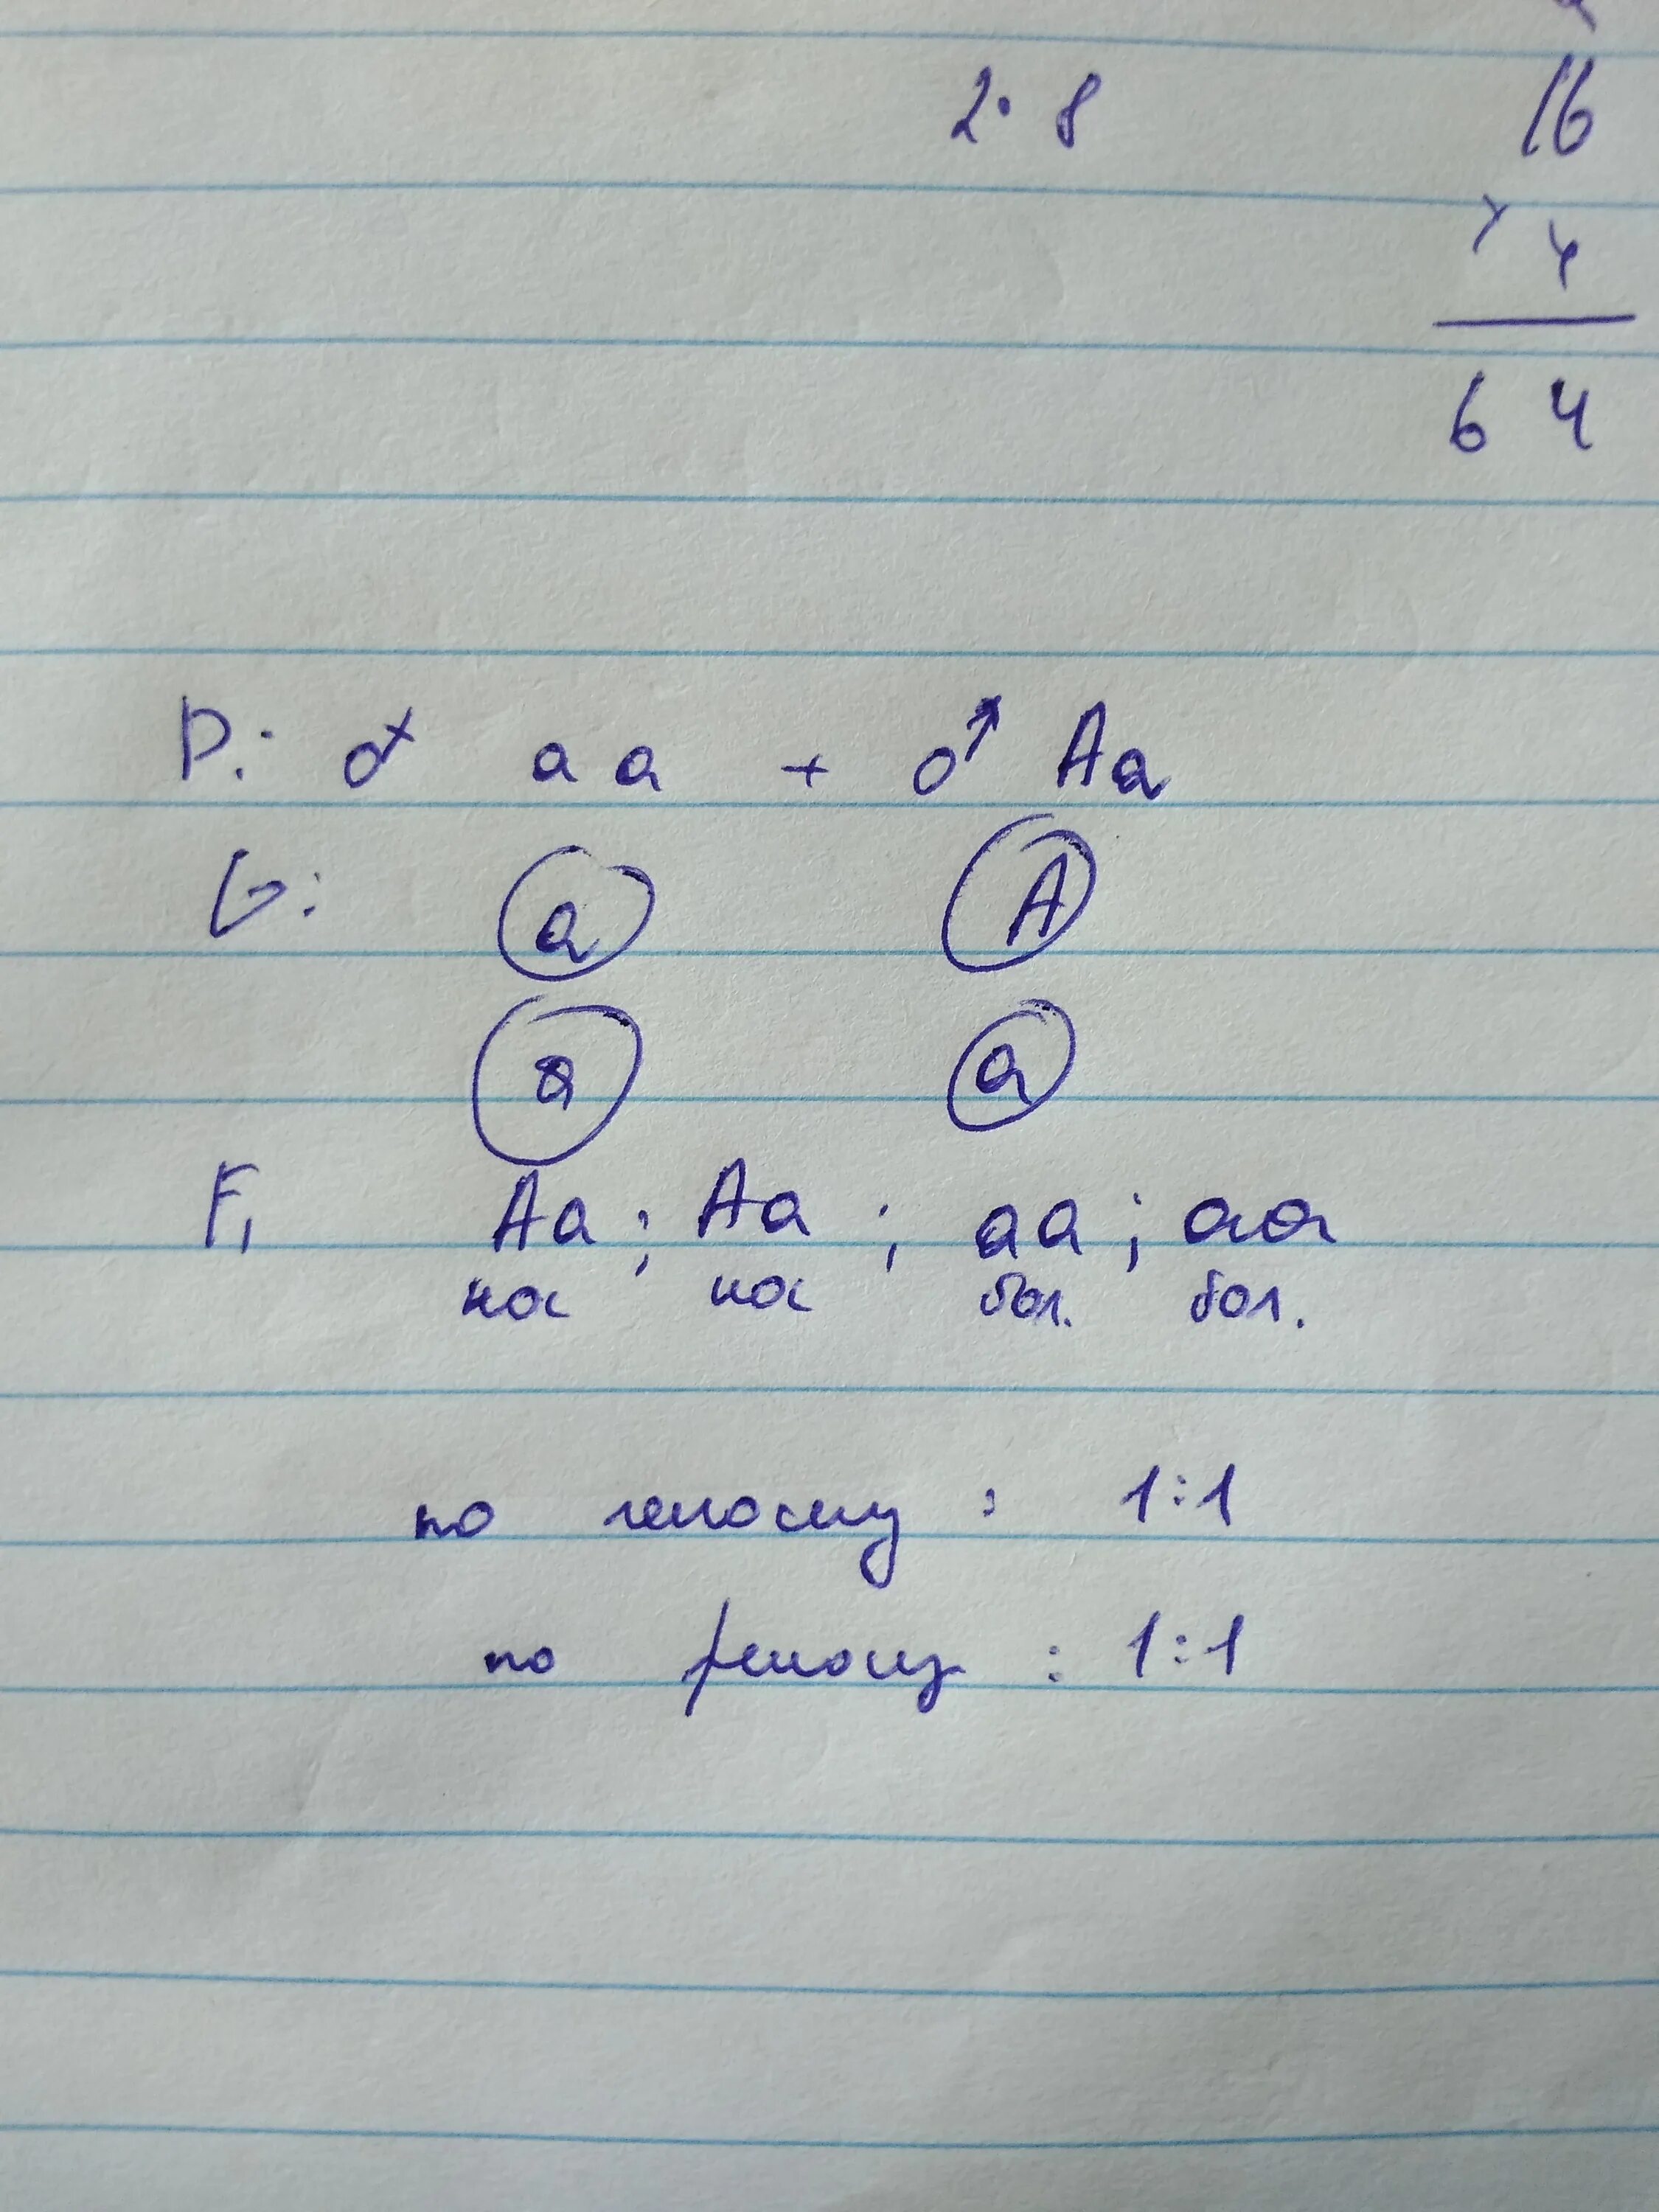 2 · 8
16
× 4
64
P: ♀ aa × ♂ Aa
G: a A
a a
F₁ Aa ; Aa ; aa ; aa
нос нос бол. бол.
по геному : 1:1
по феному : 1:1